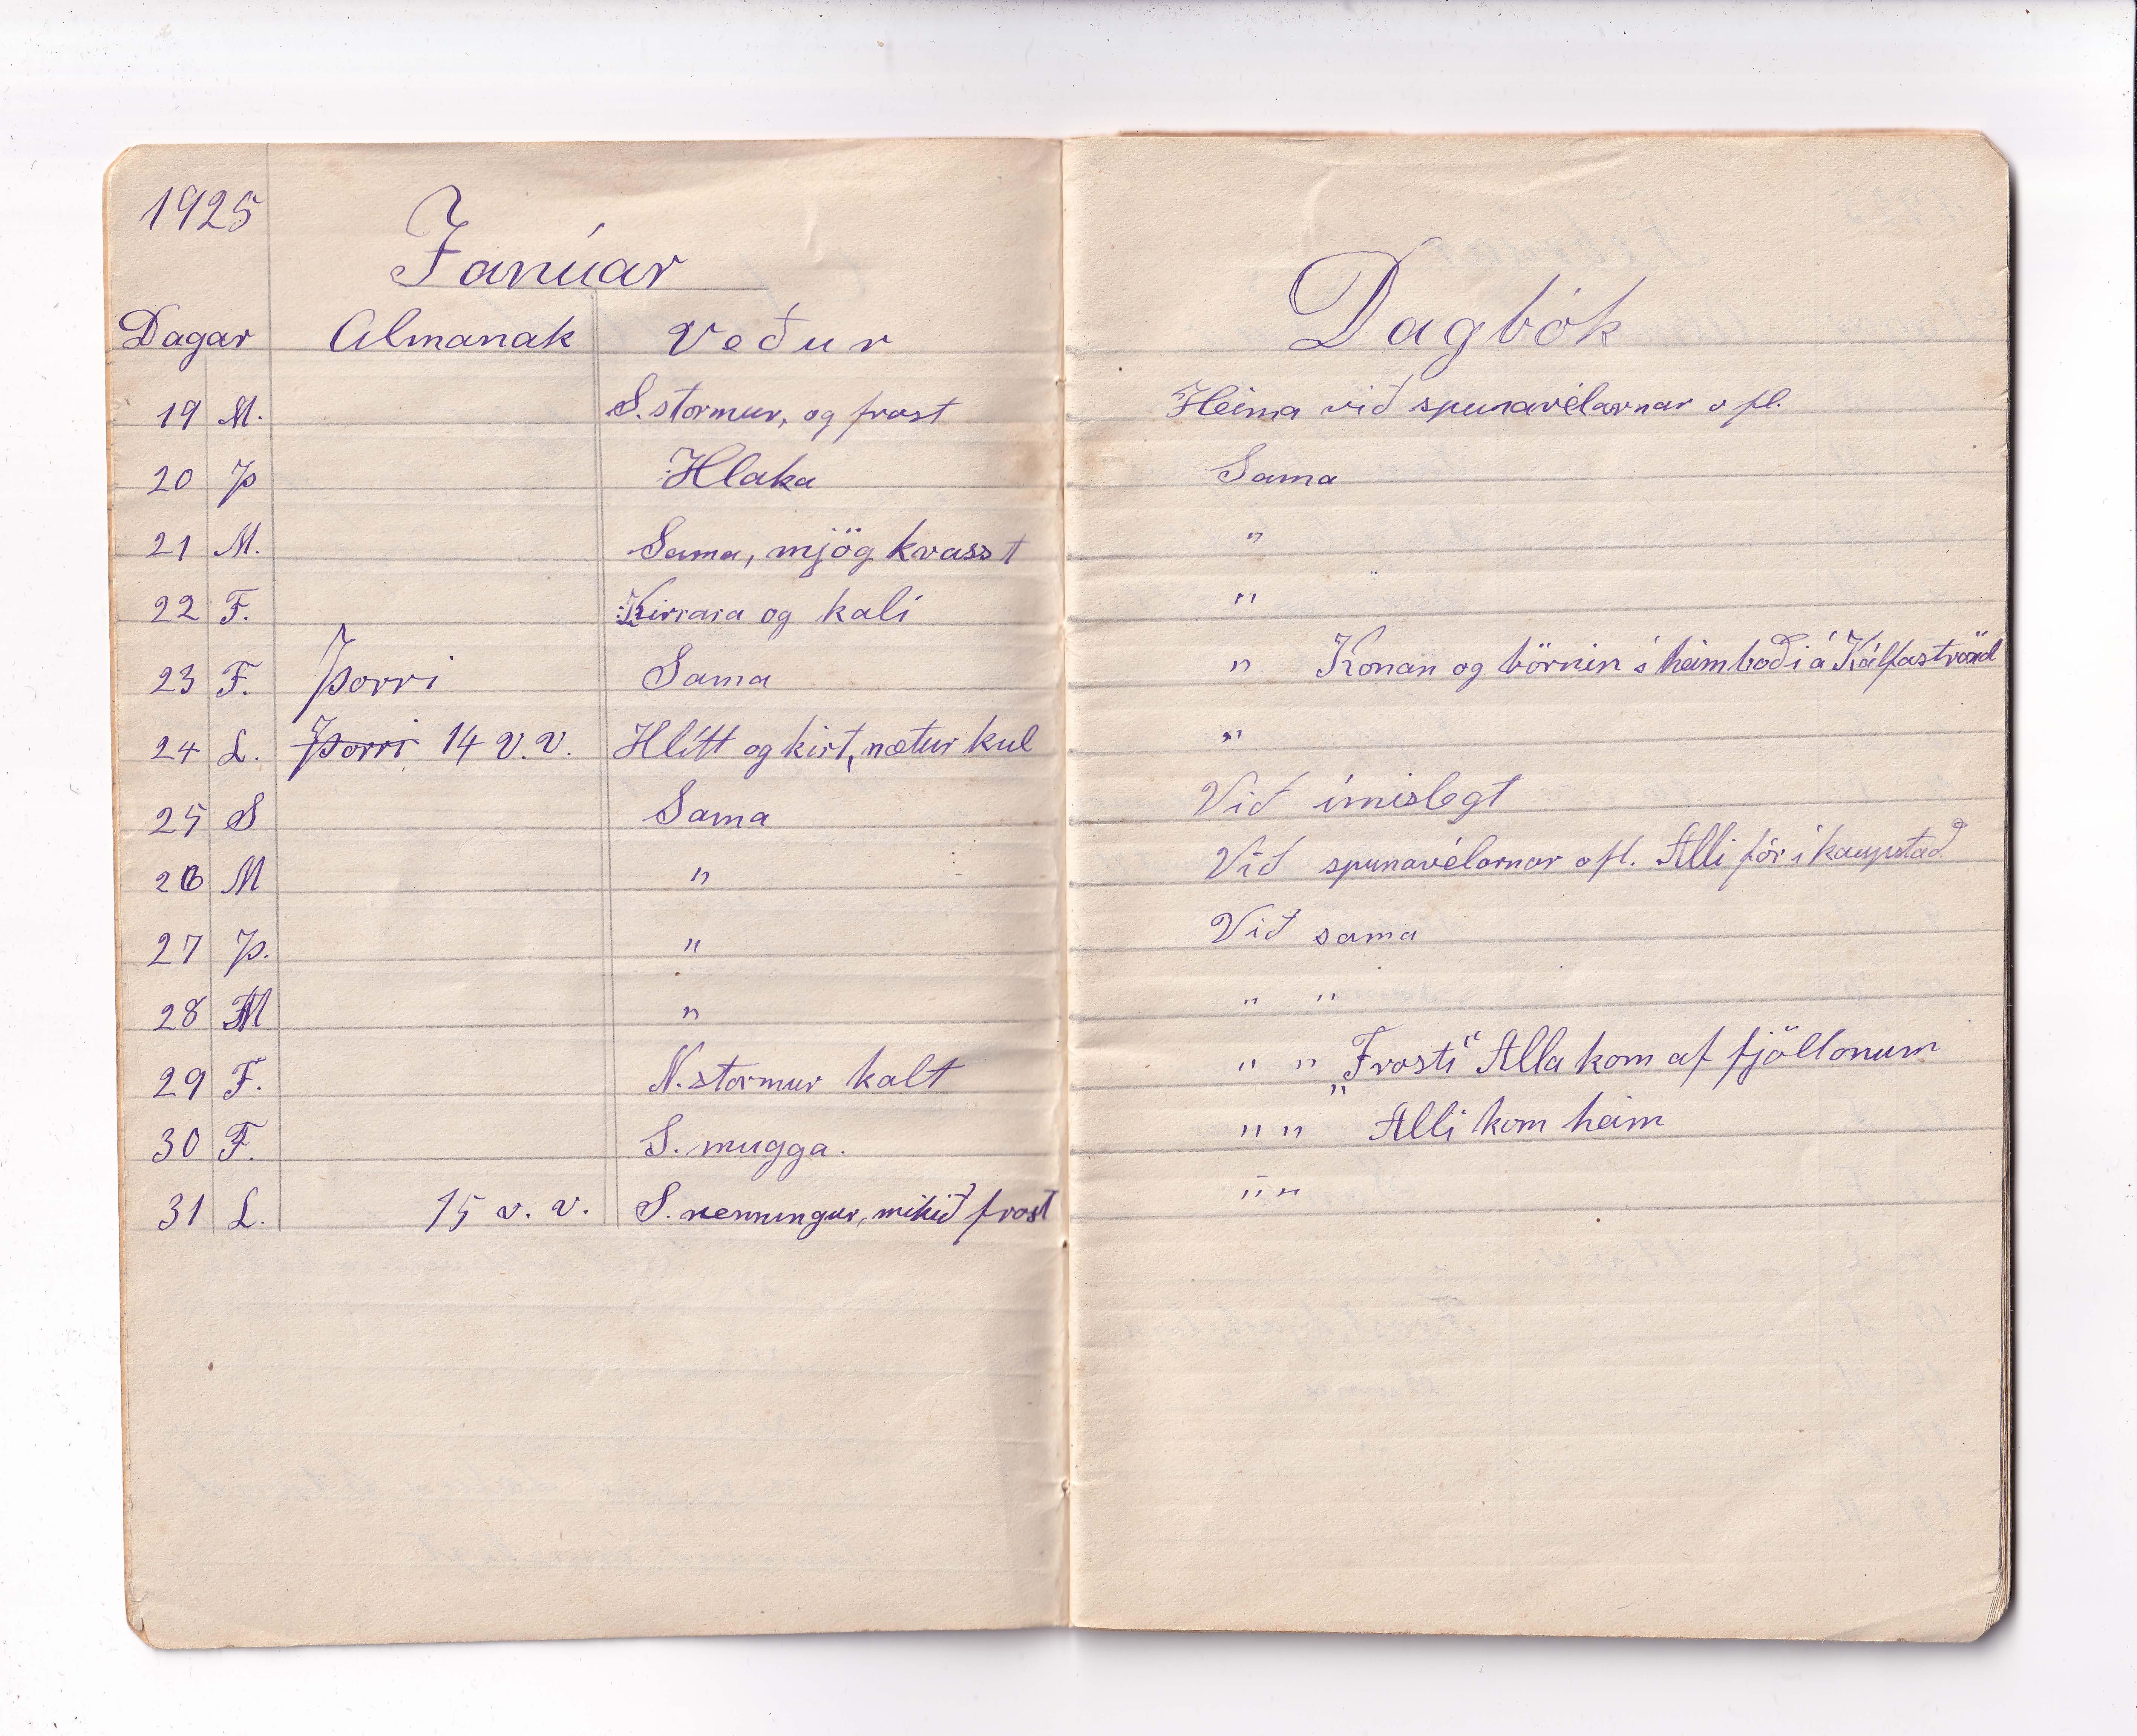 1925
Janúar
Dagar Almanak Veður
19 M. S. stormur, og frost
20 Þ Hlaka
21 M. Sama, mjög kvasst
22 F. Kirrara og kali
23 F. Þorri Sama
24 L. Þorri 14 V.V. Hlítt og kirt, nætur kul
25 S Sama
26 M "
27 Þ. "
28 M "
29 F. N. stormur kalt
30 F. S. mugga.
31 L. 15 v. v. S. renningur, mikið frost
Dagbók
Heima við spunavélarnar o fl.
Sama
"
"
" Konan og börnin í heimboði á Kálfaströnd
"
Við ímislegt
Við spunavélarnar o fl. Alli fór í kaupstað
Við sama
" "
" " „Frosti“ Alla kom af fjöllonum
" " Alli kom heim
" "